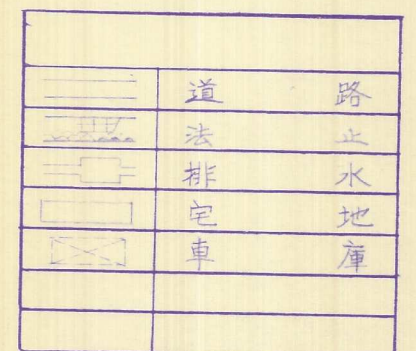 道路
法止
排水
宅地
車庫